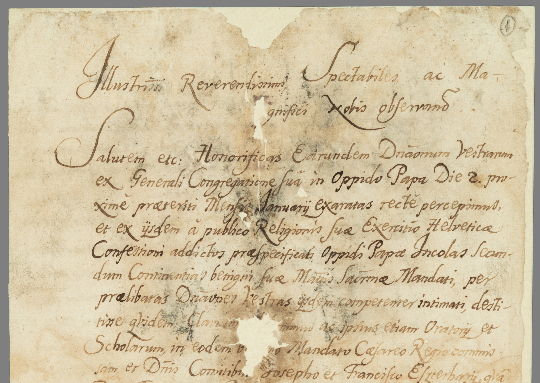 1
Illustrissimi Reverendissimi Spectabiles ac Ma-
gnifici Nobis observand
Salutem etc: Honorificas Earundem Dnaonum Vestrarum
ex Generali Congregatione suâ in Oppido Papa Die 2. pro-
xime præteriti Mensis Januarij exaratas rectè percepimus,
et ex ijsdem a publico Religionis suæ Exercitio Helveticæ
Confessioni addictos præspecificati Oppidi Papæ Incolas Secun-
dum Continentias benigni suæ Mattis Sacrmæ Mandati, per
prælibatas Dnaones Vestras ijsdem competenter intimati, desti-
ac ipsius etiam Oratorij et
Scholarum, in eodem Mandato Cæsareo Regio commis-
sam, et Dnis Comitibus Josepho et Francisco Eszterhazij